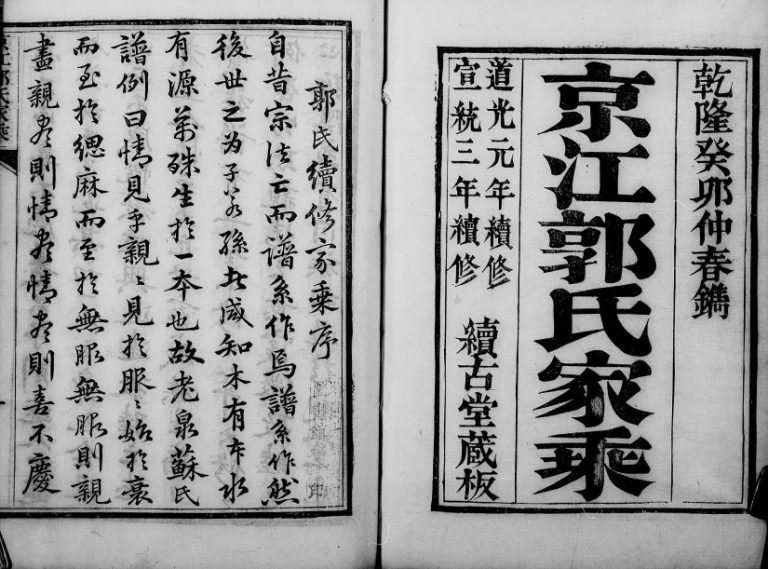 乾隆癸卯仲春鐫
京江郭氏家乘
道光元年續修
宣統三年續修
續古堂蔵板
郭氏續修家乘序
自昔宗法亡而譜系作焉譜系作然
後世之为子若孫者咸知木有本水
有源萬殊生於一本也故老泉蘇氏
譜例曰情見乎親〻見於服〻始於衰
而至於緦麻而至於無服無服則親
盡親尽則情尽情尽則喜不慶